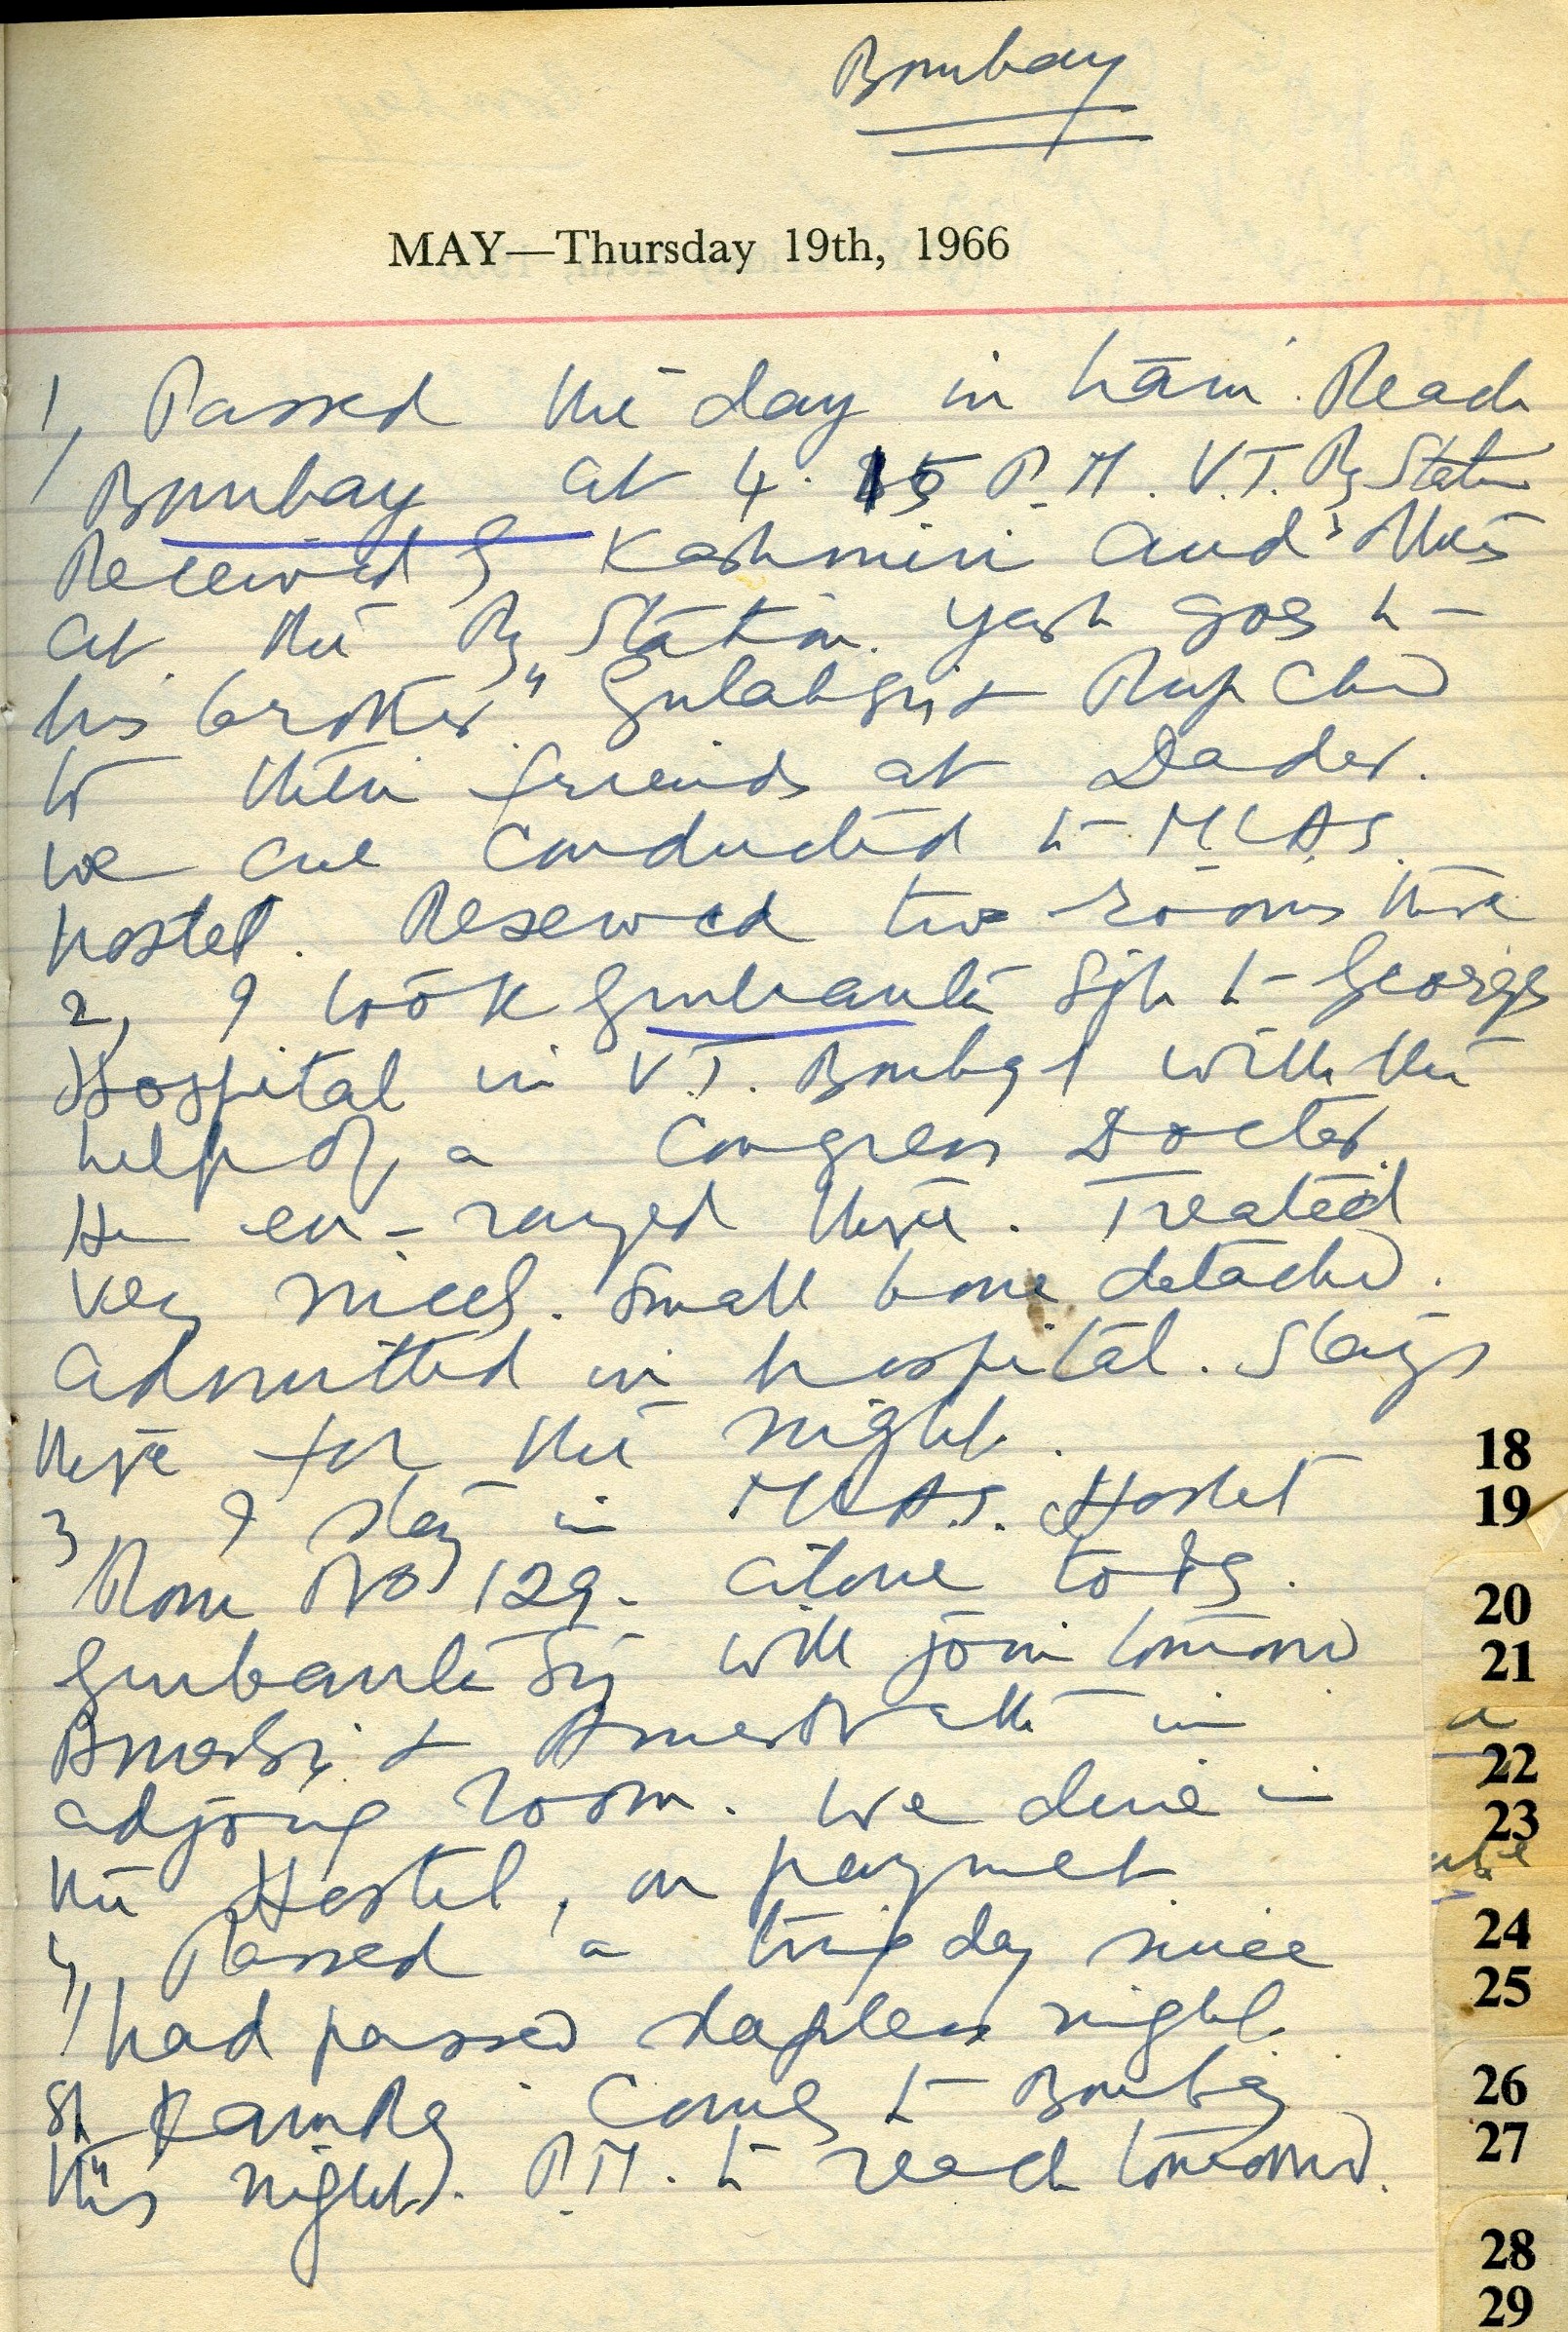 Bombay
MAY—Thursday 19th, 1966
1, Passed the day in train. Reach
Bombay at 4.15 P.M. V.T. Ry Station
Received by Kashmiri and others
at the Ry Station. Yash goes to
his brother, & Rup Chd
to their friends at Dader.
We are conducted to M.L.A.S.
hostel. Reserved two rooms there
2, I took Gurbanta Sgh to Georges
Hospital in V.T. Bombay with the
help of a Congress Doctor.
He there. Treated
very nicely. Small bone detachd.
Admitted in hospital. Stays
there for the night.
3 I stay in M.L.A.S. Hostel
Room No 129. Alone today.
Gurbanta Sgh will join tomorrow
& in
adjoing room. We dine in
the Hostel, on paymet.
4, Passed a tring day since
had passed sleepless night.
Sh comes to Bombay
this night. P.M. to reach tomorrow.
18
19
20
21
22
23
24
25
26
27
28
29